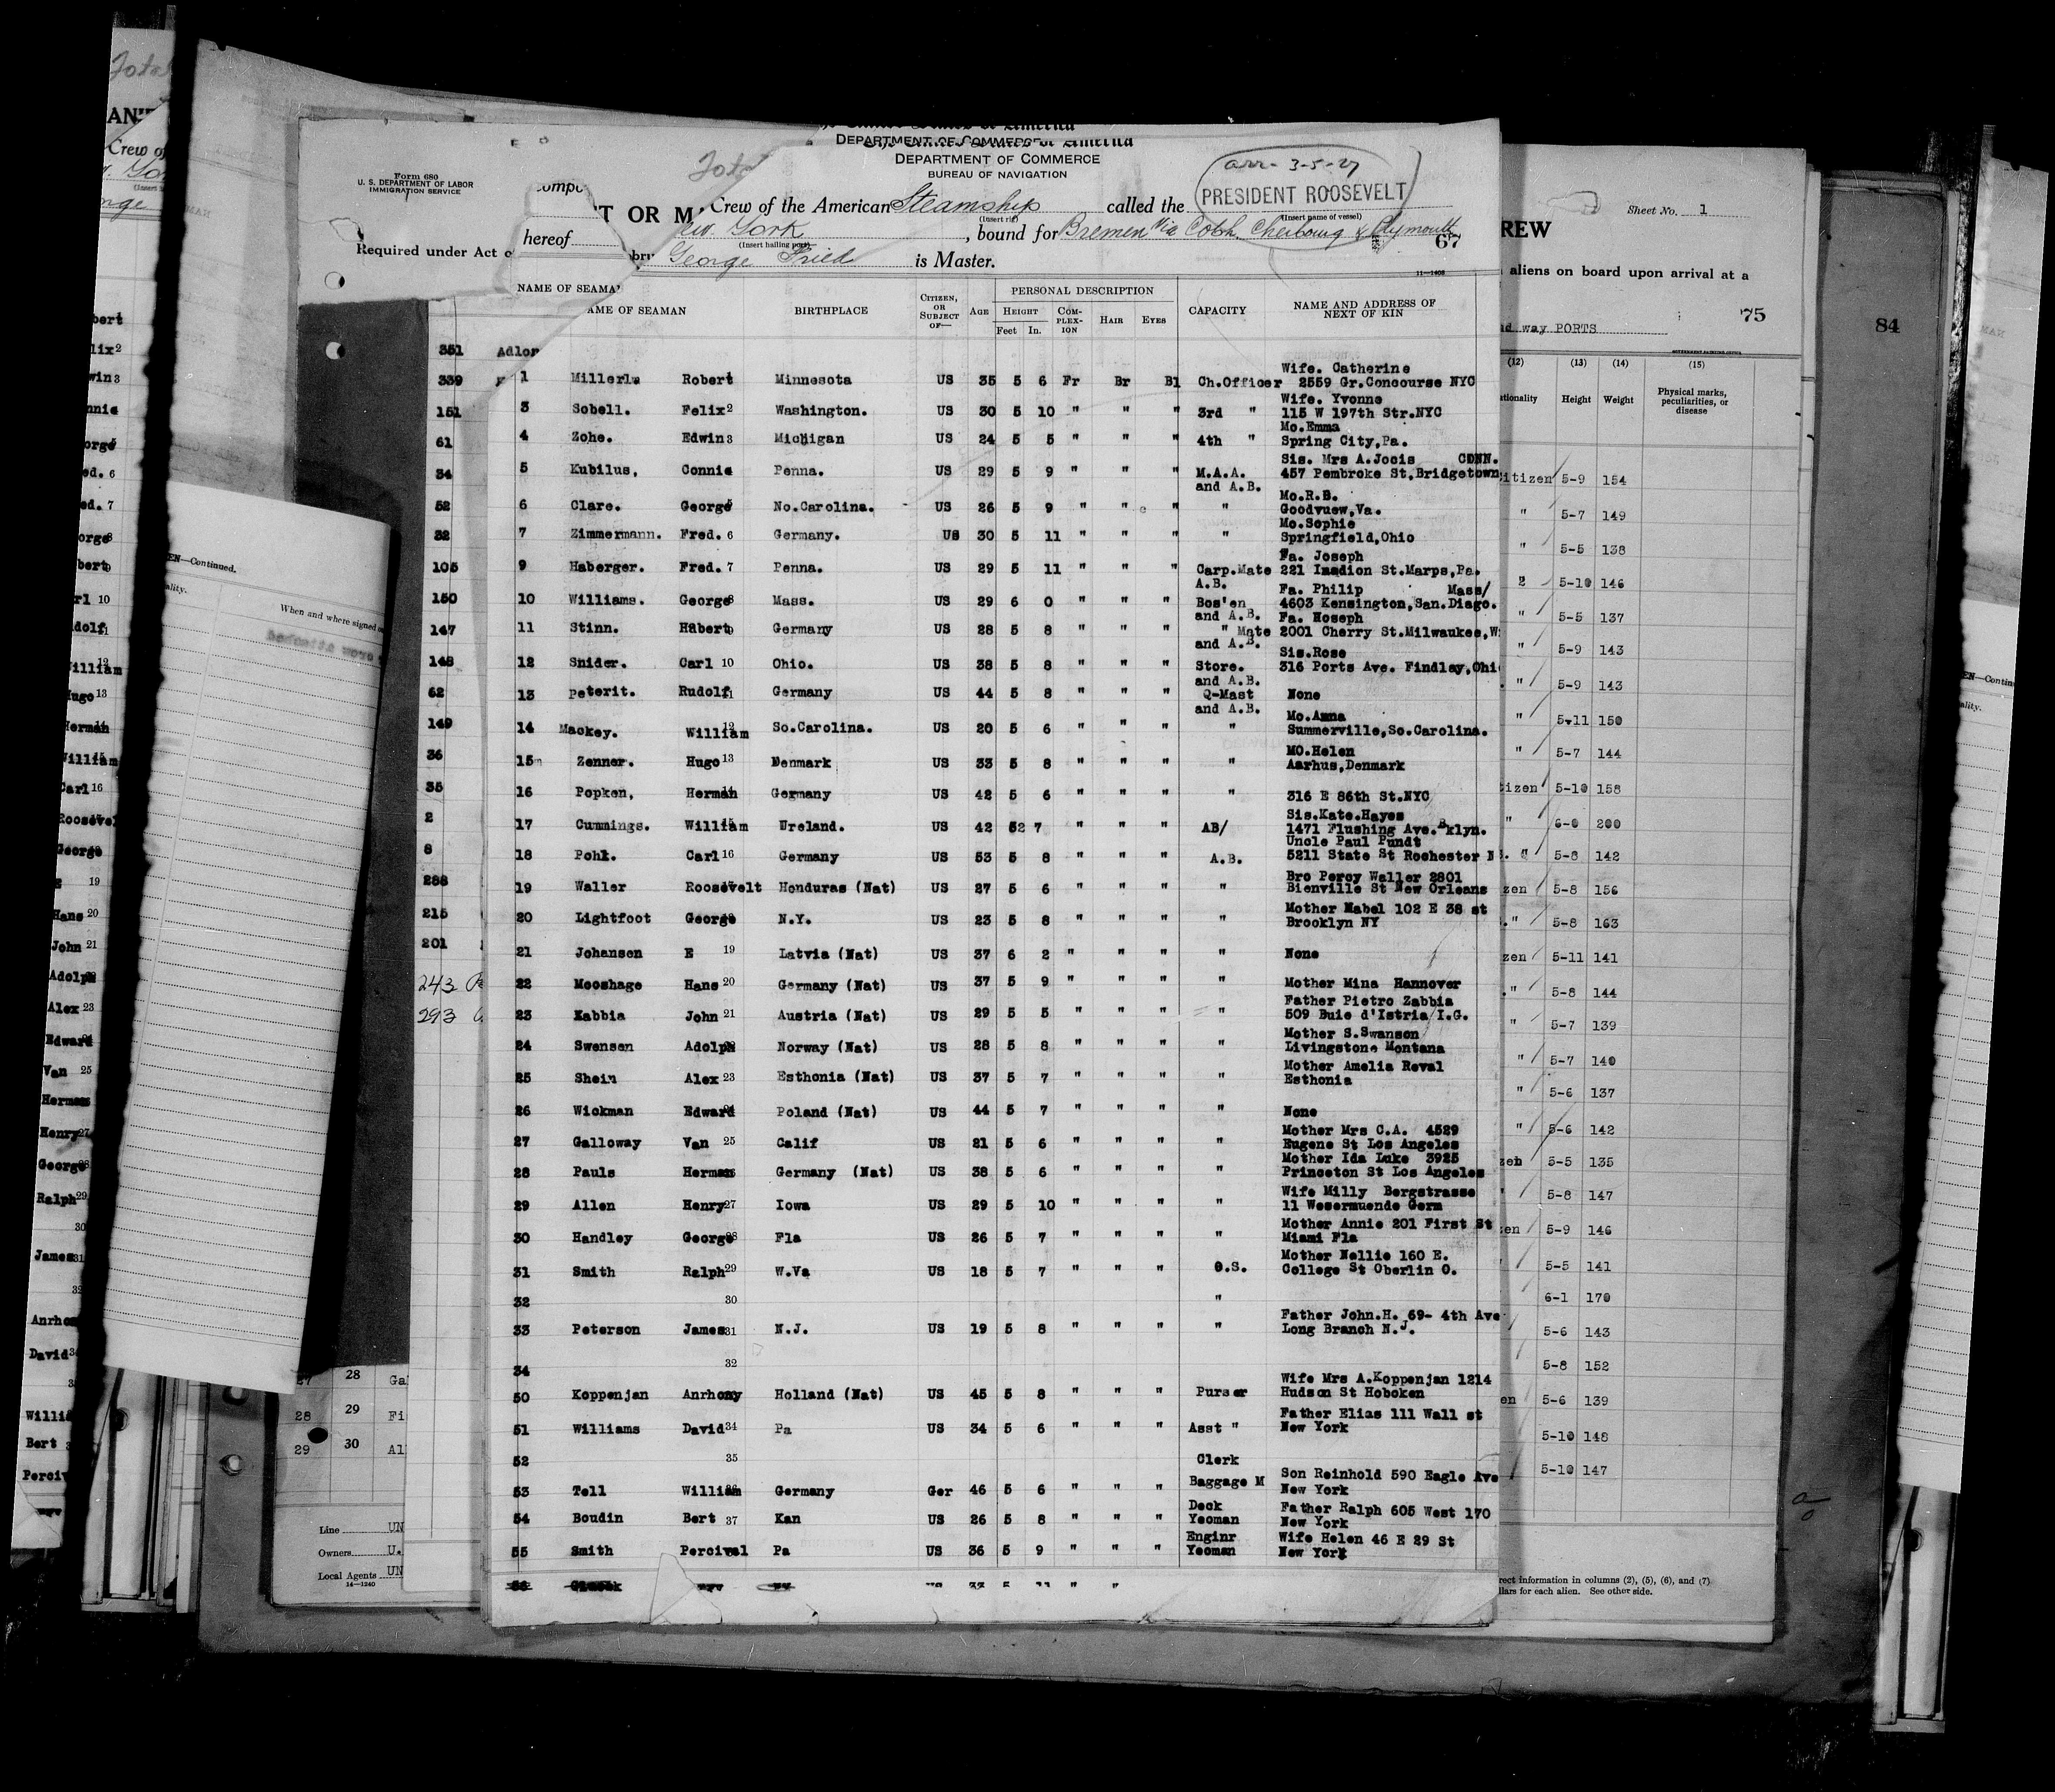 Form 680
U. S. DEPARTMENT OF LABOR
IMMIGRATION SERVICE
Required under Act
DEPARTMENT OF COMMERCE
BUREAU OF NAVIGATION
arr- 3-5-27
Crew of the American Steamship called the PRESIDENT ROOSEVELT
(Insert rig) (Insert name of vessel)
hereof York, bound for Bremen Via Cobh Cherbourg & Plymouth
(Insert hailing port)
67
George Fried is Master.
11—1408
NAME OF SEAMAN BIRTHPLACE CITIZEN, OR SUBJECT OF— AGE PERSONAL DESCRIPTION CAPACITY NAME AND ADDRESS OF NEXT OF KIN
HEIGHT COM-PLEX-ION HAIR EYES
Feet In.
351 Adlon
Wife. Catherine
339 1 Millerl. Robert Minnesota US 35 5 6 Fr Br Bl Ch.Officer 2559 Gr.Concourse NYC
Wife. Yvonne
151 3 Sobell. Felix 2 Washington. US 30 5 10 " " " 3rd " 115 W 197th Str.NYC
Mo.Emma
61 4 Zohe. Edwin 3 Michigan US 24 5 5 " " " 4th " Spring City,Pa.
Sis. Mrs A.Jocis CONN.
34 5 Kubilus, Connie Penna. US 29 5 9 " " " M.A.A. 457 Pembroke St,Bridgetown
and A.B.
Mo.R.B.
52 6 Clare. George No.Carolina. US 26 5 9 " " " " Goodvuew,Va.
Mo.Sophie
32 7 Zimmermann. Fred. 6 Germany. US 30 5 11 " " " " Springfield,Ohio
Fa. Joseph
105 9 Haberger. Fred. 7 Penna. US 29 5 11 " " " Carp.Mate 221 St.Marps,Pa.
A.B.
Fa. Philip Mass/
150 10 Williams. George 8 Mass. US 29 6 0 " " " Bos'en 4603 Kensington,San.Diago.
and A.B. Fa. Hoseph
147 11 Stinn. Hubert 9 Germany US 28 5 8 " " " " Mate 2001 Cherry St.Milwaukee,W
and A.B.
Sis.Rose
148 12 Snider. Carl 10 Ohio. US 38 5 8 " " " Store. 316 Ports Ave. Findlay,Ohi
and A.B.
62 13 Peterit. Rudolf 11 Germany US 44 5 8 " " " Q-Mast None
and A.B.
Mo.Anna
149 14 Mackey. William 12 So.Carolina. US 20 5 6 " " " " Summerville,So.Carolina.
MO.Helen
36 15 Zenner. Hugo 13 Denmark US 33 5 8 " " " " Aarhus,Denmark
35 16 Popken, Herman Germany US 42 5 6 " " " " 316 E 86th St.NYC
Sis.Kate.Hayes
2 17 Cummings. William Ureland. US 42 52 7 " " " AB/ 1471 Flushing Ave.Bklyn.
Uncle Paul Pundt
8 18 Pohl. Carl 16 Germany US 53 5 8 " " " A.B. 5211 State St Rochester N
Bro Percy Waller 2801
288 19 Waller Roosevelt Honduras (Nat) US 27 5 6 " " " " Bienville St New Orleans
Mother Mabel 102 E 38 st
215 20 Lightfoot George N.Y. US 23 5 8 " " " " Brooklyn NY
201 21 Johansen E 19 Latvia (Nat) US 37 6 2 " " " " None
243 22 Mooshage Hans 20 Germany (Nat) US 37 5 9 " " " " Mother Mina Hannover
Father Pietro Zabbia
293 23 Xabbia John 21 Austria (Nat) US 29 5 5 " " " " 509 Buie d'Istria I.G.
Mother S.Swanson
24 Swensen Adolph Norway (Nat) US 28 5 8 " " " " Livingstone Montana
Mother Amelia Reval
25 Shein Alex 23 Esthonia (Nat) US 37 5 7 " " " " Esthonia
26 Wickman Edward Poland (Nat) US 44 5 7 " " " " None
Mother Mrs C.A. 4529
27 Galloway Van 25 Calif US 21 5 6 " " " " Eugene St Los Angeles
Mother Ida Luke 3925
28 Pauls Herman Germany (Nat) US 38 5 6 " " " " Princeton St Los Angeles
Wife Milly Bergstrasse
29 Allen Henry 27 Iowa US 29 5 10 " " " " 11 Wesermuende Germ
Mother Annie 201 First St
30 Handley George Fla US 26 5 7 " " " " Miami Fla
Mother Nellie 160 E.
31 Smith Ralph 29 W.Va US 18 5 7 " " " O.S. College St Oberlin O.
32 30 "
Father John.H. 69- 4th Ave
33 Peterson James 31 N.J. US 19 5 8 " " " " Long Branch N.J.
34 32
Wife Mrs A.Koppenjan 1214
50 Koppenjan Anrhony Holland (Nat) US 45 5 8 " " " Purser Hudson St Hoboken
Father Elias 111 Wall st
51 Williams David 34 Pa US 34 5 6 " " " Asst " New York
52 35 Clerk
Son Reinhold 590 Eagle Ave
53 Tell William Germany Ger 46 5 6 " " " Baggage M New York
Deck Father Ralph 605 West 170
54 Boudin Bert 37 Kan US 26 5 8 " " " Yeoman New York
Enginr Wife Helen 46 E 29 St
55 Smith Percival Pa US 36 5 9 " " " Yeoman New York
REW
Sheet No. 1
aliens on board upon arrival at a
way PORTS
75
84
(12) (13) (14) (15)
Height Weight Physical marks, peculiarities, or disease
itizen 5-9 154
" 5-7 149
" 5-5 138
5-10 146
" 5-5 137
" 5-9 143
" 5-9 143
" 5-11 150
" 5-7 144
tizen 5-10 158
" 6-0 200
" 5-8 142
zen 5-8 156
" 5-8 163
zen 5-11 141
" 5-8 144
" 5-7 139
" 5-7 140
" 5-6 137
" 5-6 142
zen 5-5 135
5-8 147
zen 5-9 146
5-5 141
6-1 170
5-6 143
5-8 152
en 5-6 139
5-10 148
5-10 147
rect information in columns (2), (5), (6), and (7)
llars for each alien. See other side.
EN—Continued.
ality.
When and where signed
27 28 Ga
28 29 Fi
29 30 Al
Line UN
Owners U.
Local Agents UN
14—1240